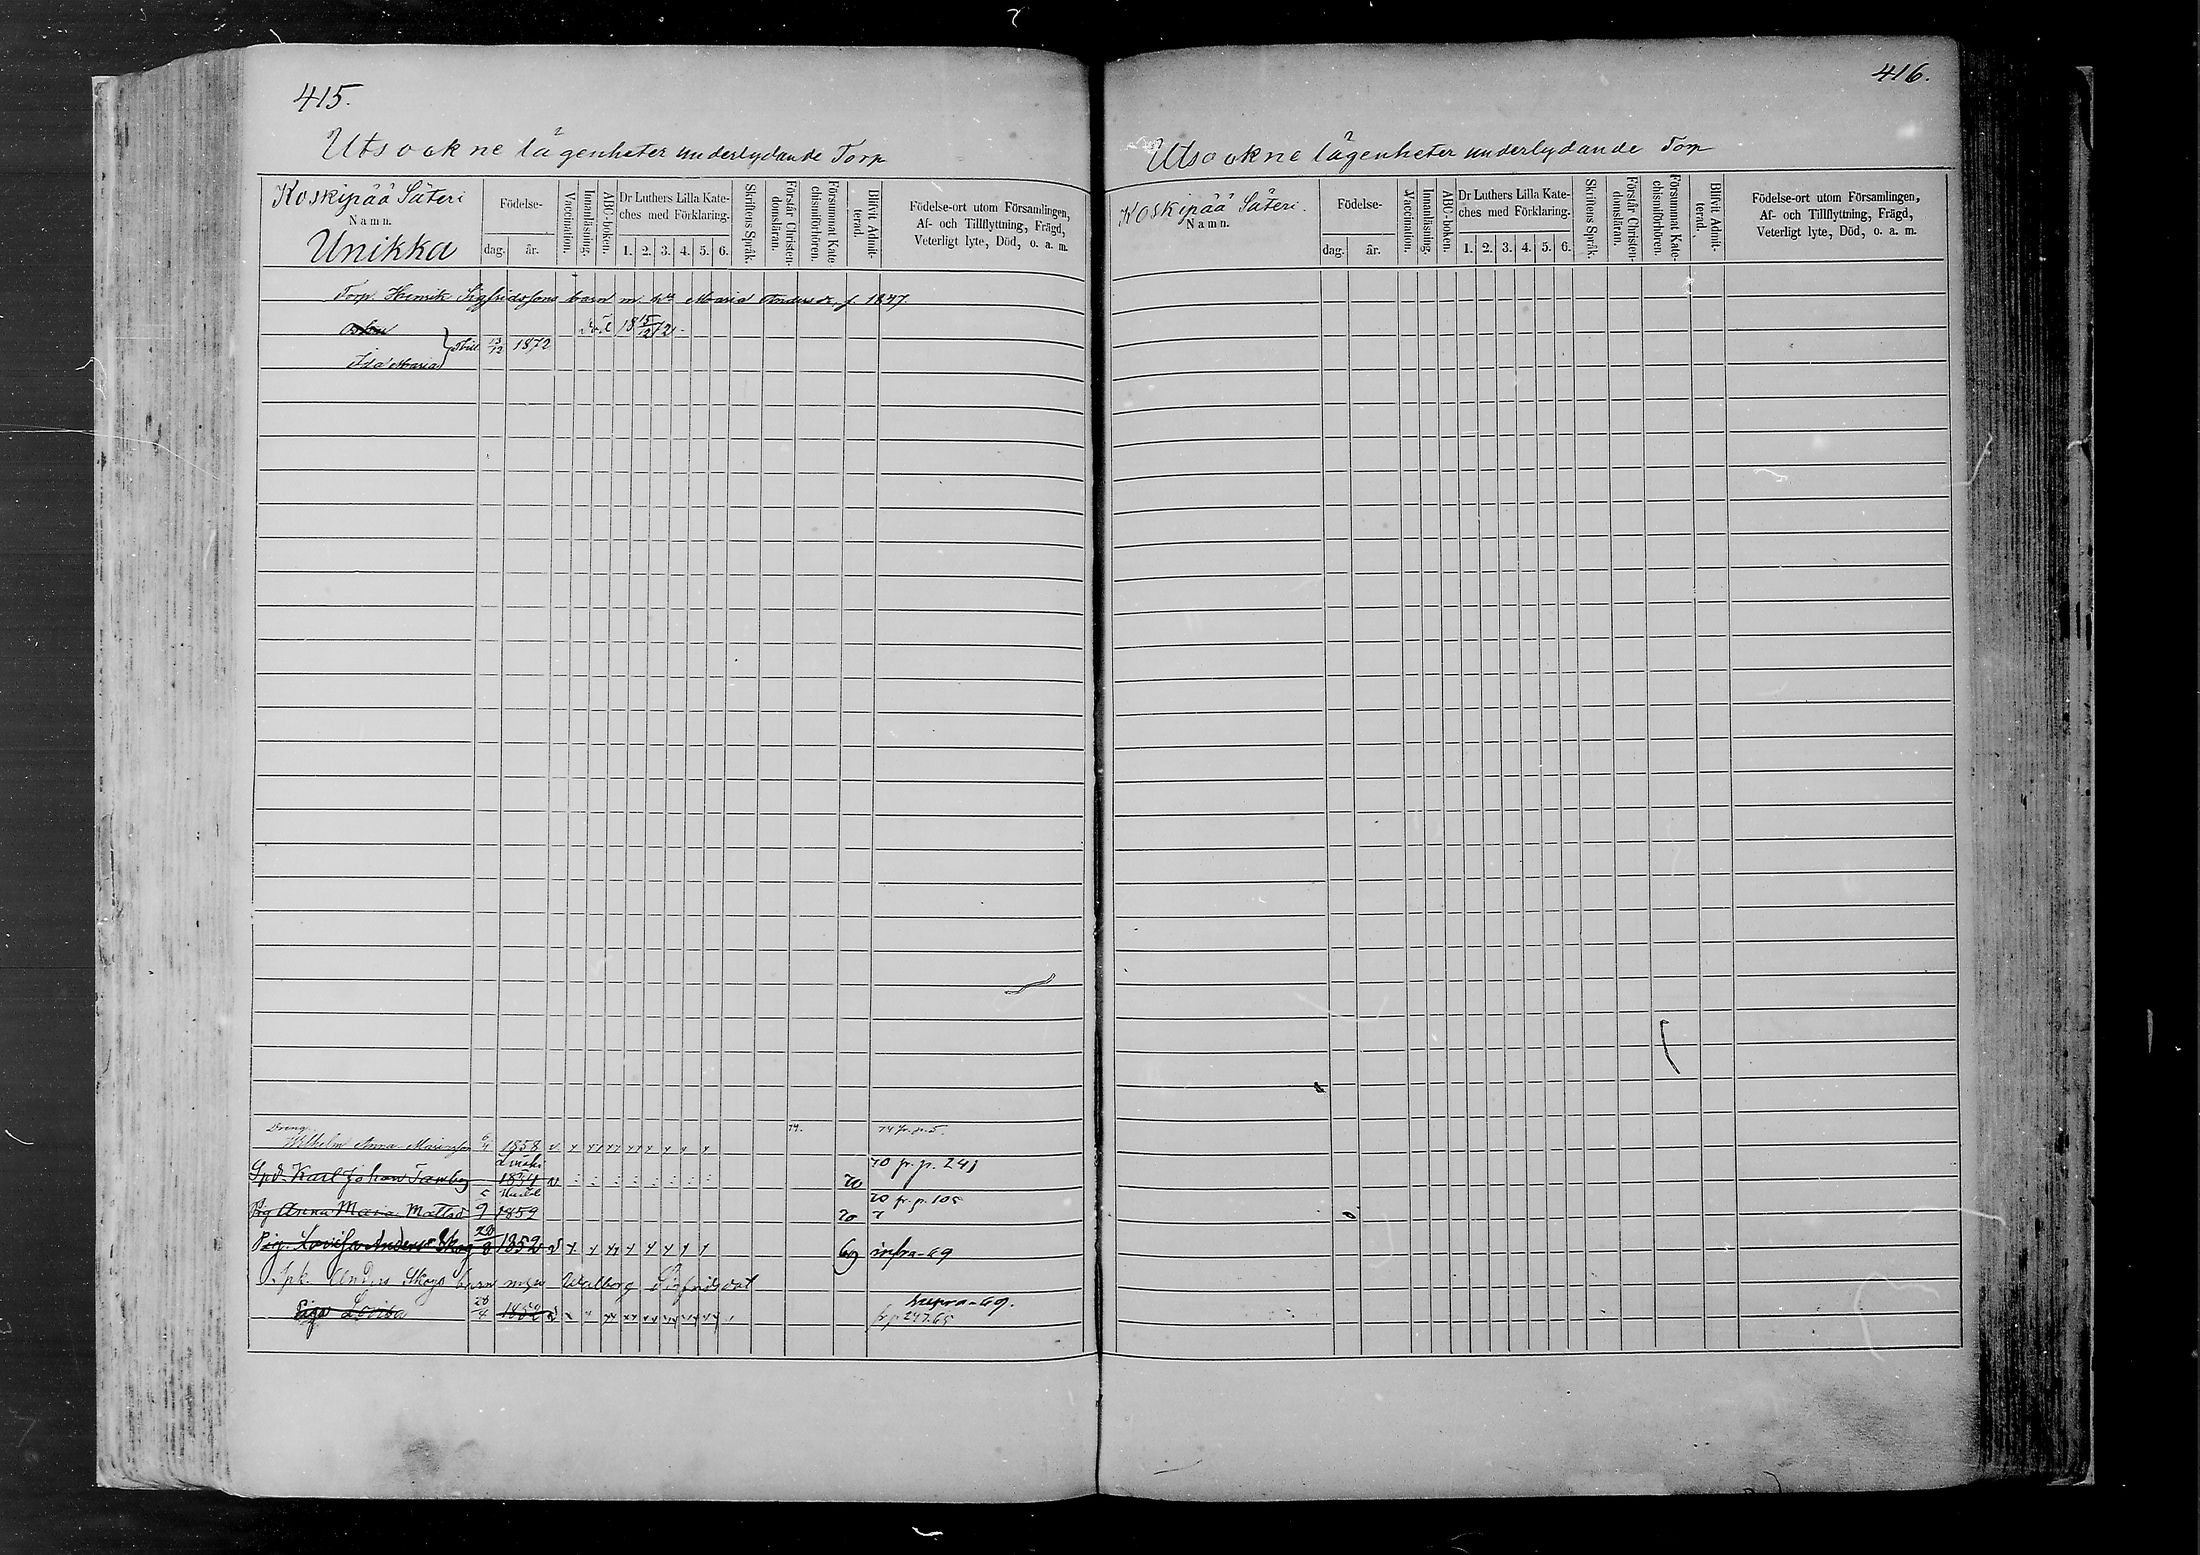 415.
Utsockne lägenheter underlydande Torp
Koskipää Säteri
Namn.
Unikka
Födelse-
dag. år.
Vaccination.
Innanläsning.
ABC-boken.
Dr Luthers Lilla Kate-
ches med Förklaring.
1. 2. 3. 4. 5. 6.
Skriftens Språk.
Förstår Christen-
domsläran.
Försummat Kate-
chismiförhören.
Blifvit Admit-
terad.
Födelse-ort utom Församlingen,
Af- och Tillflyttning, Frägd,
Veterligt lyte, Död, o. a. m.
Torp. Henrik Sigfridssons barn m. h. Maria Andersdr, f. 1847
död 18 15/12 72.
Ida Maria } 13/12 1872
Dreng.
Wilhelm Anna Mariasson 6/11 1858 v 74. 74 fr. p. 5.
Karl Johan 1834 v 70 70 fr. p. 241
Pig Anna Maria Mattsd 5/9 1859 70 70 fr. p. 105
Pig. Lovisa Andersdr Skog 28/8 1852 v 69 infra-69
Spk. Anders Skogs barn m. Walborg Sigfridsdot
Piga Lovisa 28/4 1852 v supra-69.
fr p 247.65
416.
Utsockne lägenheter underlydande Torp
Koskipää Säteri.
Namn.
Födelse-
dag. år.
Vaccination.
Innanläsning.
ABC-boken.
Dr Luthers Lilla Kate-
ches med Förklaring.
1. 2. 3. 4. 5. 6.
Skriftens Språk.
Förstår Christen-
domsläran.
Försummat Kate-
chismiförhören.
Blifvit Admit-
terad.
Födelse-ort utom Församlingen,
Af- och Tillflyttning, Frägd,
Veterligt lyte, Död, o. a. m.